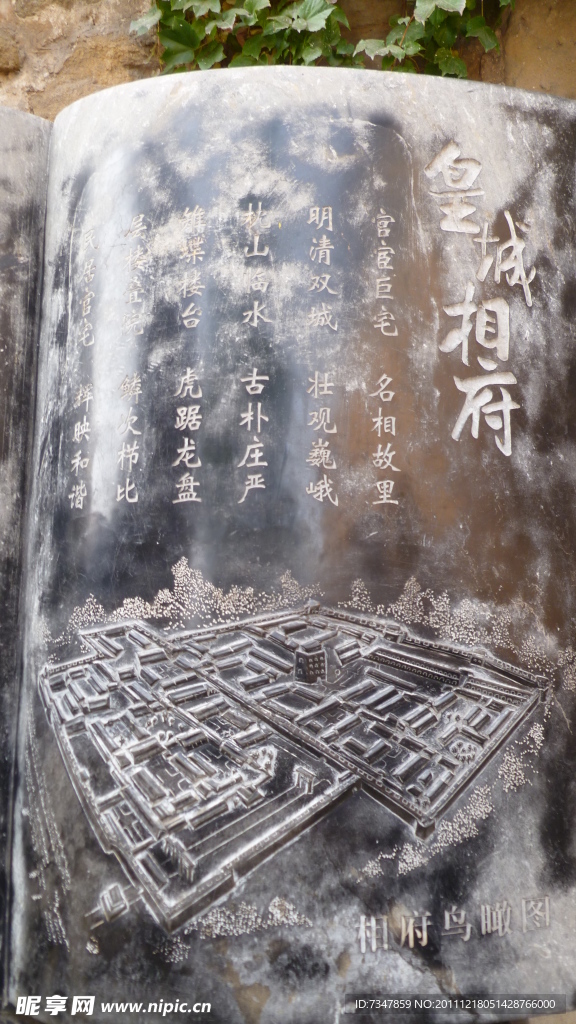 皇城相府
官宦巨宅 名相故里
明清双城 壮观巍峨
枕山临水 古朴庄严
雉堞楼台 虎踞龙盘
鳞次栉比
民居官宅 辉映和谐
相府鸟瞰图
昵享网 www.nipic.cn
ID:7347859 NO:20111218051428766000